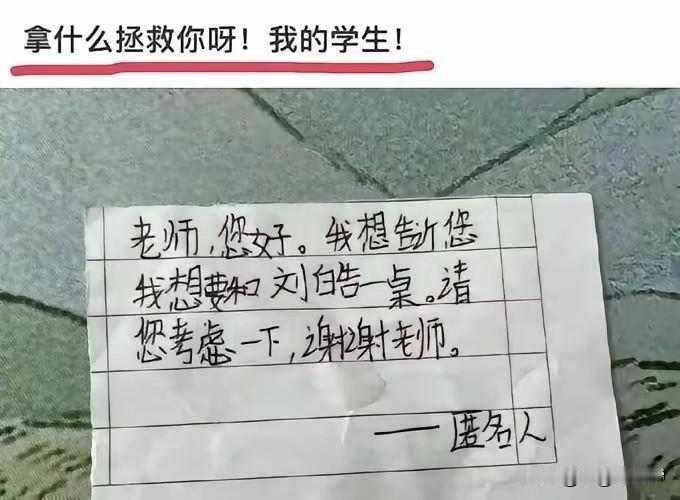 拿什么拯救你呀！我的学生！
老师,您好。我想告诉您
我想要和 刘皓一桌。请
您考虑一下,谢谢老师。
—— 匿名人